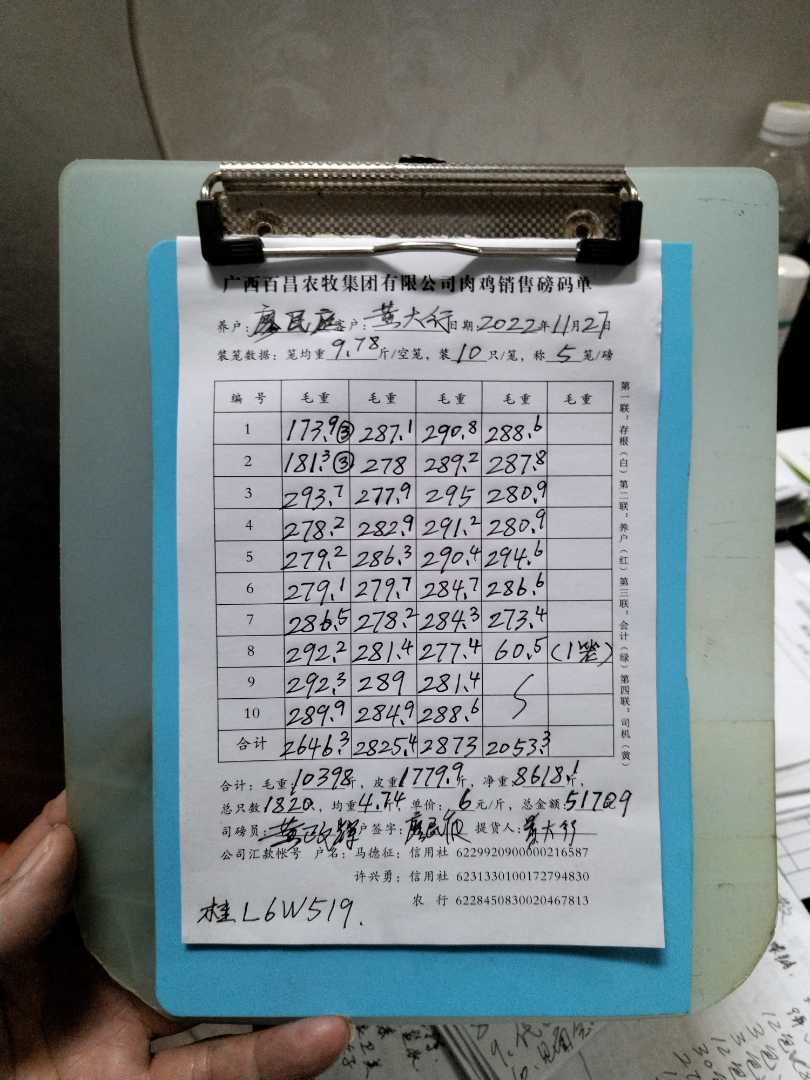 广西百昌农牧集团有限公司肉鸡销售磅码单
养户:廖民庭客户:黄大行日期:2022年11月27日
装笼数据:笼均重9.78斤/空笼,装10只/笼,称5笼/磅
编号 毛重 毛重 毛重 毛重 毛重
1 173.9③ 287.1 290.8 288.6
2 181.3③ 278 289.2 287.8
3 293.7 277.9 295 280.9
4 278.2 282.9 291.2 280.9
5 279.2 286.3 290.4 294.6
6 279.1 279.7 284.7 286.6
7 286.5 278.2 284.3 273.4
8 292.2 281.4 277.4 60.5 (1笼)
9 292.3 289 281.4
10 289.9 284.9 288.6
合计 2646.3 2825.4 2873 2053.3
第一联:存根(白)第二联:养户(红)第三联:会计(绿)第四联:司机(黄)
合计:毛重:10398斤,皮重1779.9斤,净重:8618.1斤,
总只数1820,均重4.74,单价:6元/斤,总金额51709
司磅员: 户签字: 提货人:黄大行
公司汇款帐号 户名:马德征:信用社 6229920900000216587
许兴勇:信用社 6231330100172794830
农行 6228450830020467813
桂L6W519.